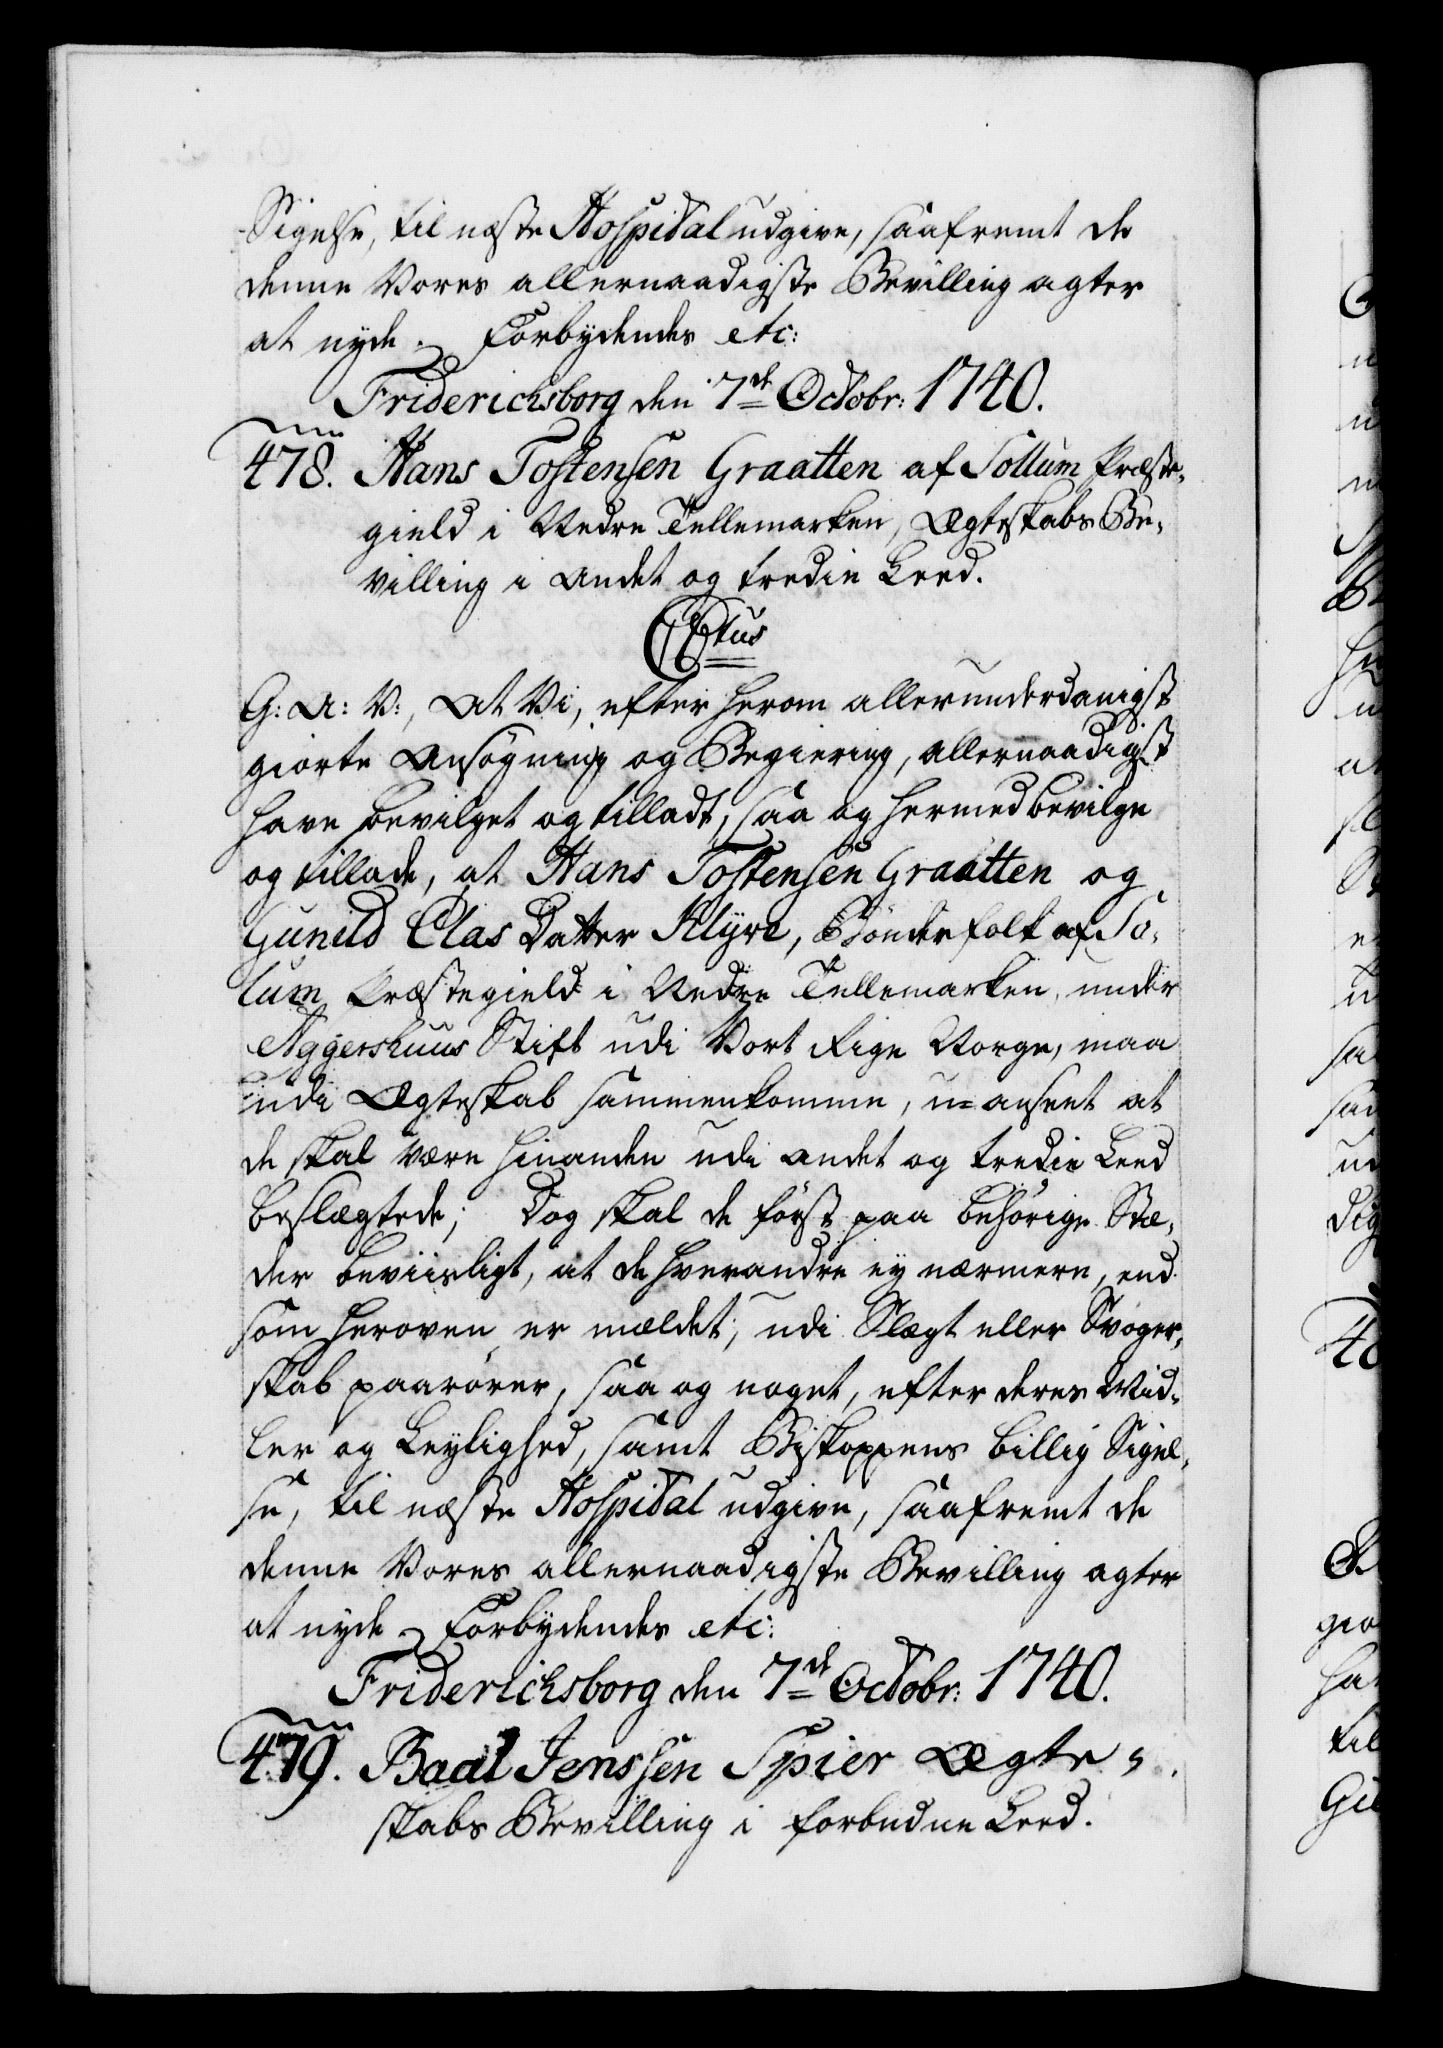 Sigelse, til næste Hospital udgive, saafremt de
denne Vores allernaadigste Bevilling agter
at nyde. Forbydendes etc:
Friderichsborg den 7de Octobr: 1740.
478. Hans Tostensen Graatten af Sollum Præste-
gield i Nedre Tellemarken, Ægteskabs Be-
villing i andet og tredie Leed.
C6tus
G: A: V:, At Vi, efter herom allerunderdanigst
giorte Ansøgning og Begiering, allernaadigst
have bevilget og tilladt, saa og hermed bevilge
og tillade, at Hans Tostensen Graatten og
Gunild Clas Datter Klyve, Bønderfolk af So-
lum Præstegield i Nedre Tellemarken under
Aggershuus Stift udi Vort Rige Norge, maa
udi Ægteskab sammenkomme, u-anseet at
de skal være hinanden udi andet og tredie Leed
beslægtede; Dog skal de først paa behörige Stæ-
der beviisligt, at de hverandre ey nærmere, end
som heroven er meldet, udi Slægt eller Svoger-
skab paarører, saa og noget, efter deres Mid-
ler og Leylighed, samt Biskoppens billig Sigel-
se, til næste Hospital udgive, saafremt de
denne Vores allernaadigste Bevilling agter
at nyde. Forbydendes etc:
Friderichsborg den 7de Octobr: 1740.
479. Baal Jenssen Spier Ægte-
skabs Bevilling i forbudne Leed.